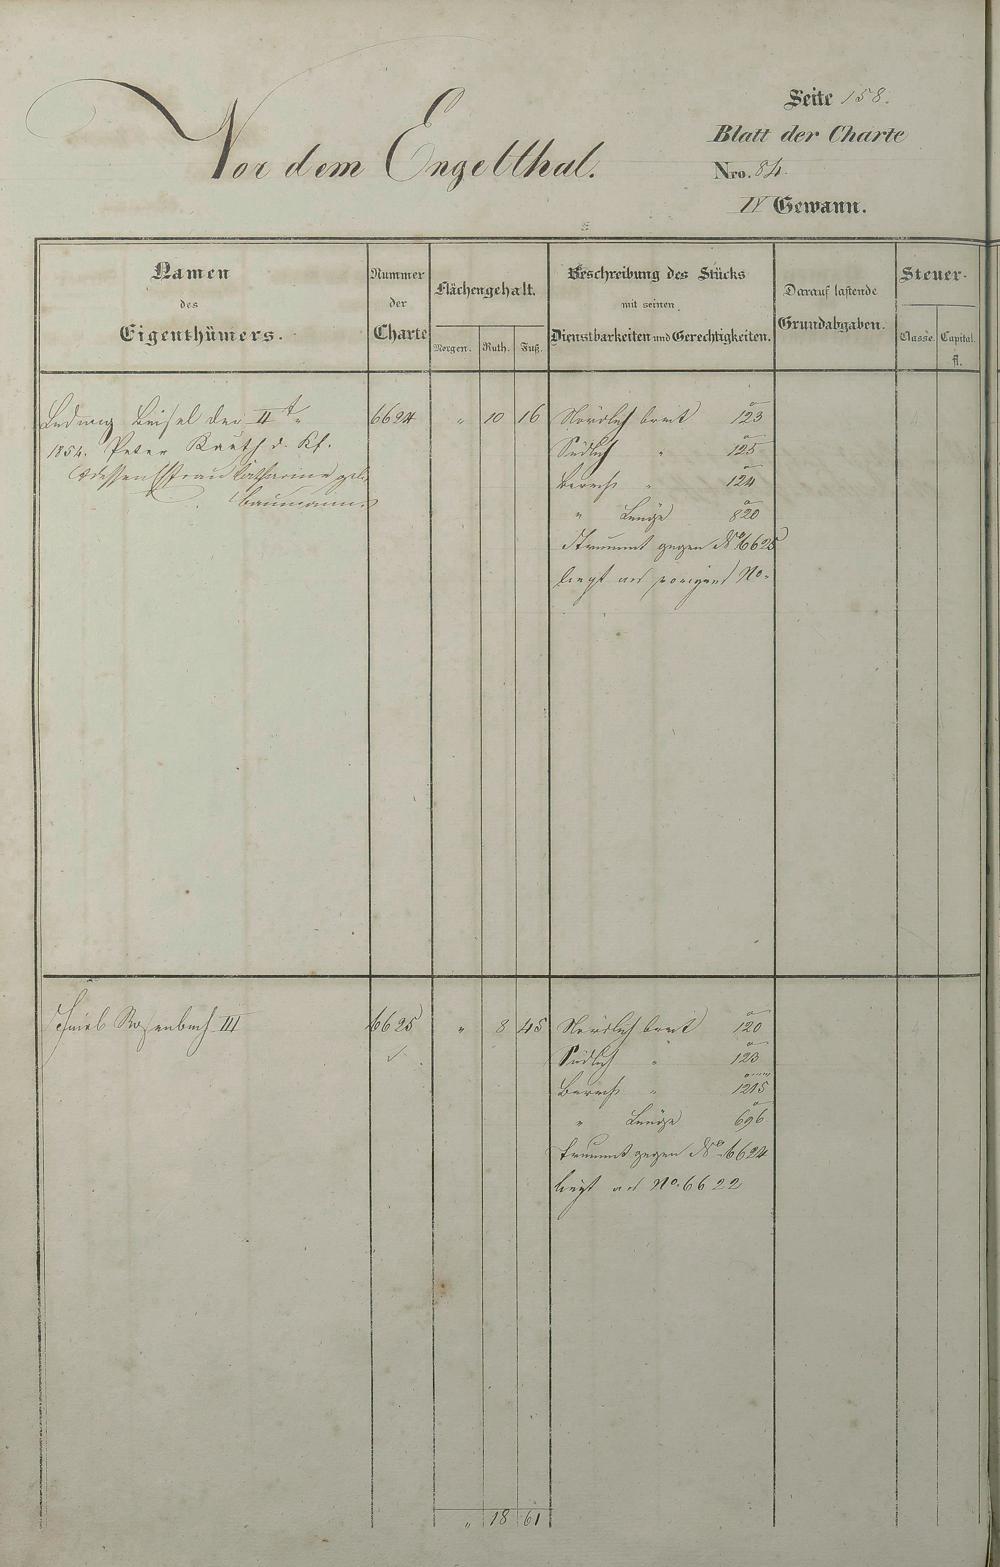 Vor dem Engelthal.
Seite 158.
Blatt der Charte
Nro. 84.
IV Gewann.
Namen
des
Eigenthümers.
Nummer
der
Charte
Flächengehalt.
Morgen. Ruth. Fuß.
Beschreibung des Stücks
mit seinen
Dienstbarkeiten und Gerechtigkeiten.
Darauf lastende
Grundabgaben.
Steuer-
Classe. Capital.
fl.
Ludwig Beisel der IIte
6624 " 10 16
Nördlich breit 123
1854. Peter Kauth d. Kf.
Südlich " 125
dessen Ehefrau Catharine geb.
Baumann.
Berecht " 124
" Länge 820
Strummt gegen No 6625
liegt an vorigens No.
Rosenbach III
6625 " 8 45
Nördlich breit 120
Südlich " 123
Berecht " 1215
" Länge 696
strummt gegen No. 6624
liegt an No. 6622
" 18 61